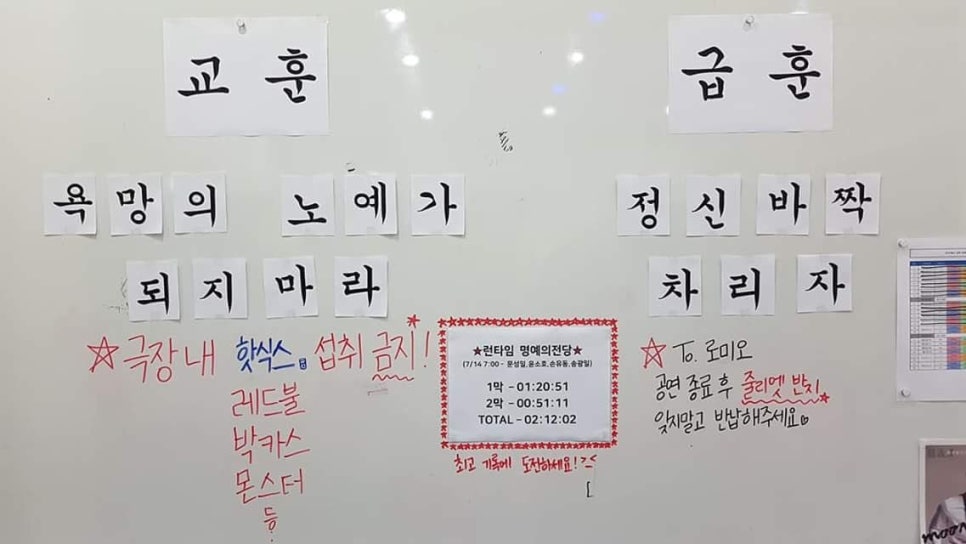 교훈
욕망의 노예가
되지마라
☆극장내 핫식스 섭취 금지!
레드불
박카스
몬스터
등
★런타임 명예의전당★
(7/14 7:00 - 문성일,윤소호,손유동,송광일)
1막 - 01:20:51
2막 - 00:51:11
TOTAL - 02:12:02
최고 기록에 도전하세요! >_<
급훈
정신바짝
차리자
☆ To. 로미오
공연 종료 후 줄리엣 반지
잊지말고 반납해주세요♡
moon